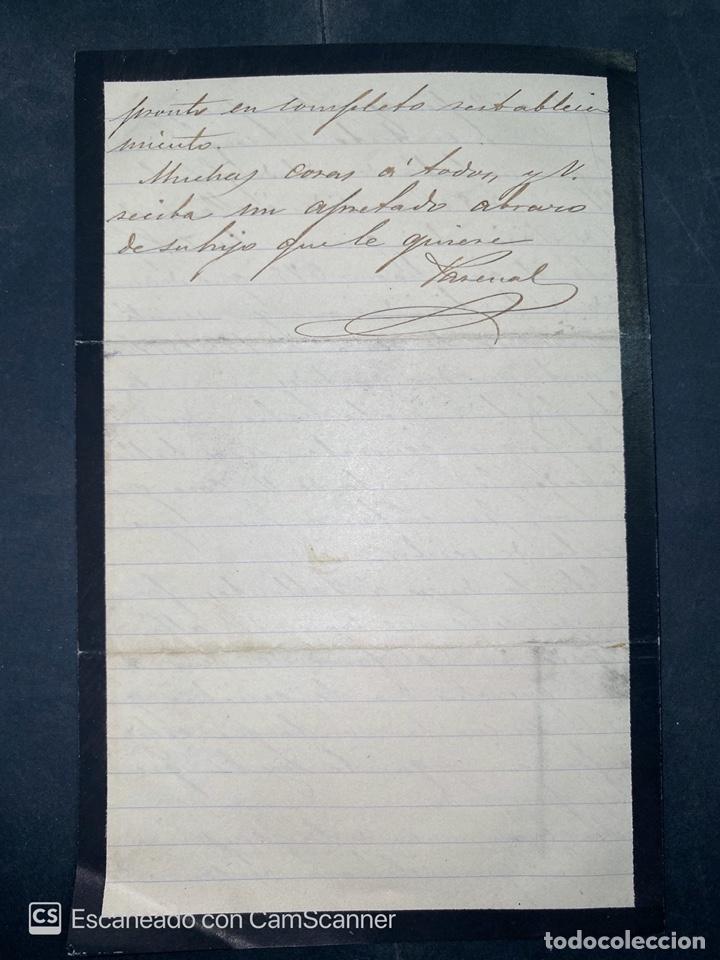 pronto en completo restableci
miento.
Muchas cosas á todos, y V.
reciba un apretado abrazo
de su hijo que le quiere
Pascual
CS Escaneado con CamScanner
todocoleccion